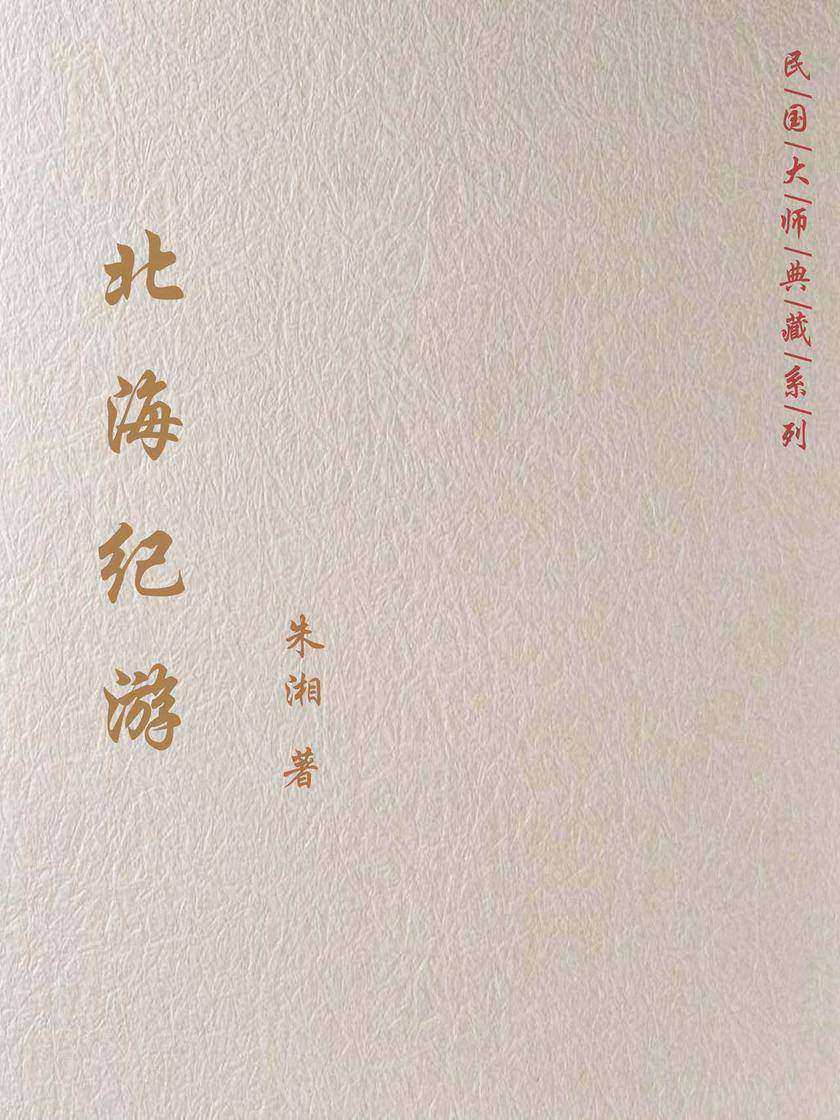 民/国/大/师/典/藏/系/列
北海纪游
朱湘 著